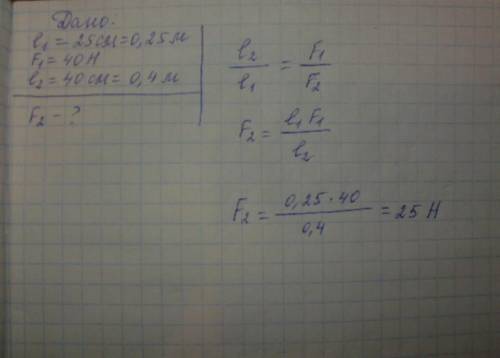 Дано:
l₁ = 25см = 0,25 м
F₁ = 40 Н
l₂ = 40см = 0,4 м
F₂ - ?
l₂/l₁ = F₁/F₂
F₂ = l₁F₁/l₂
F₂ = 0,25·40/0,4 = 25 Н